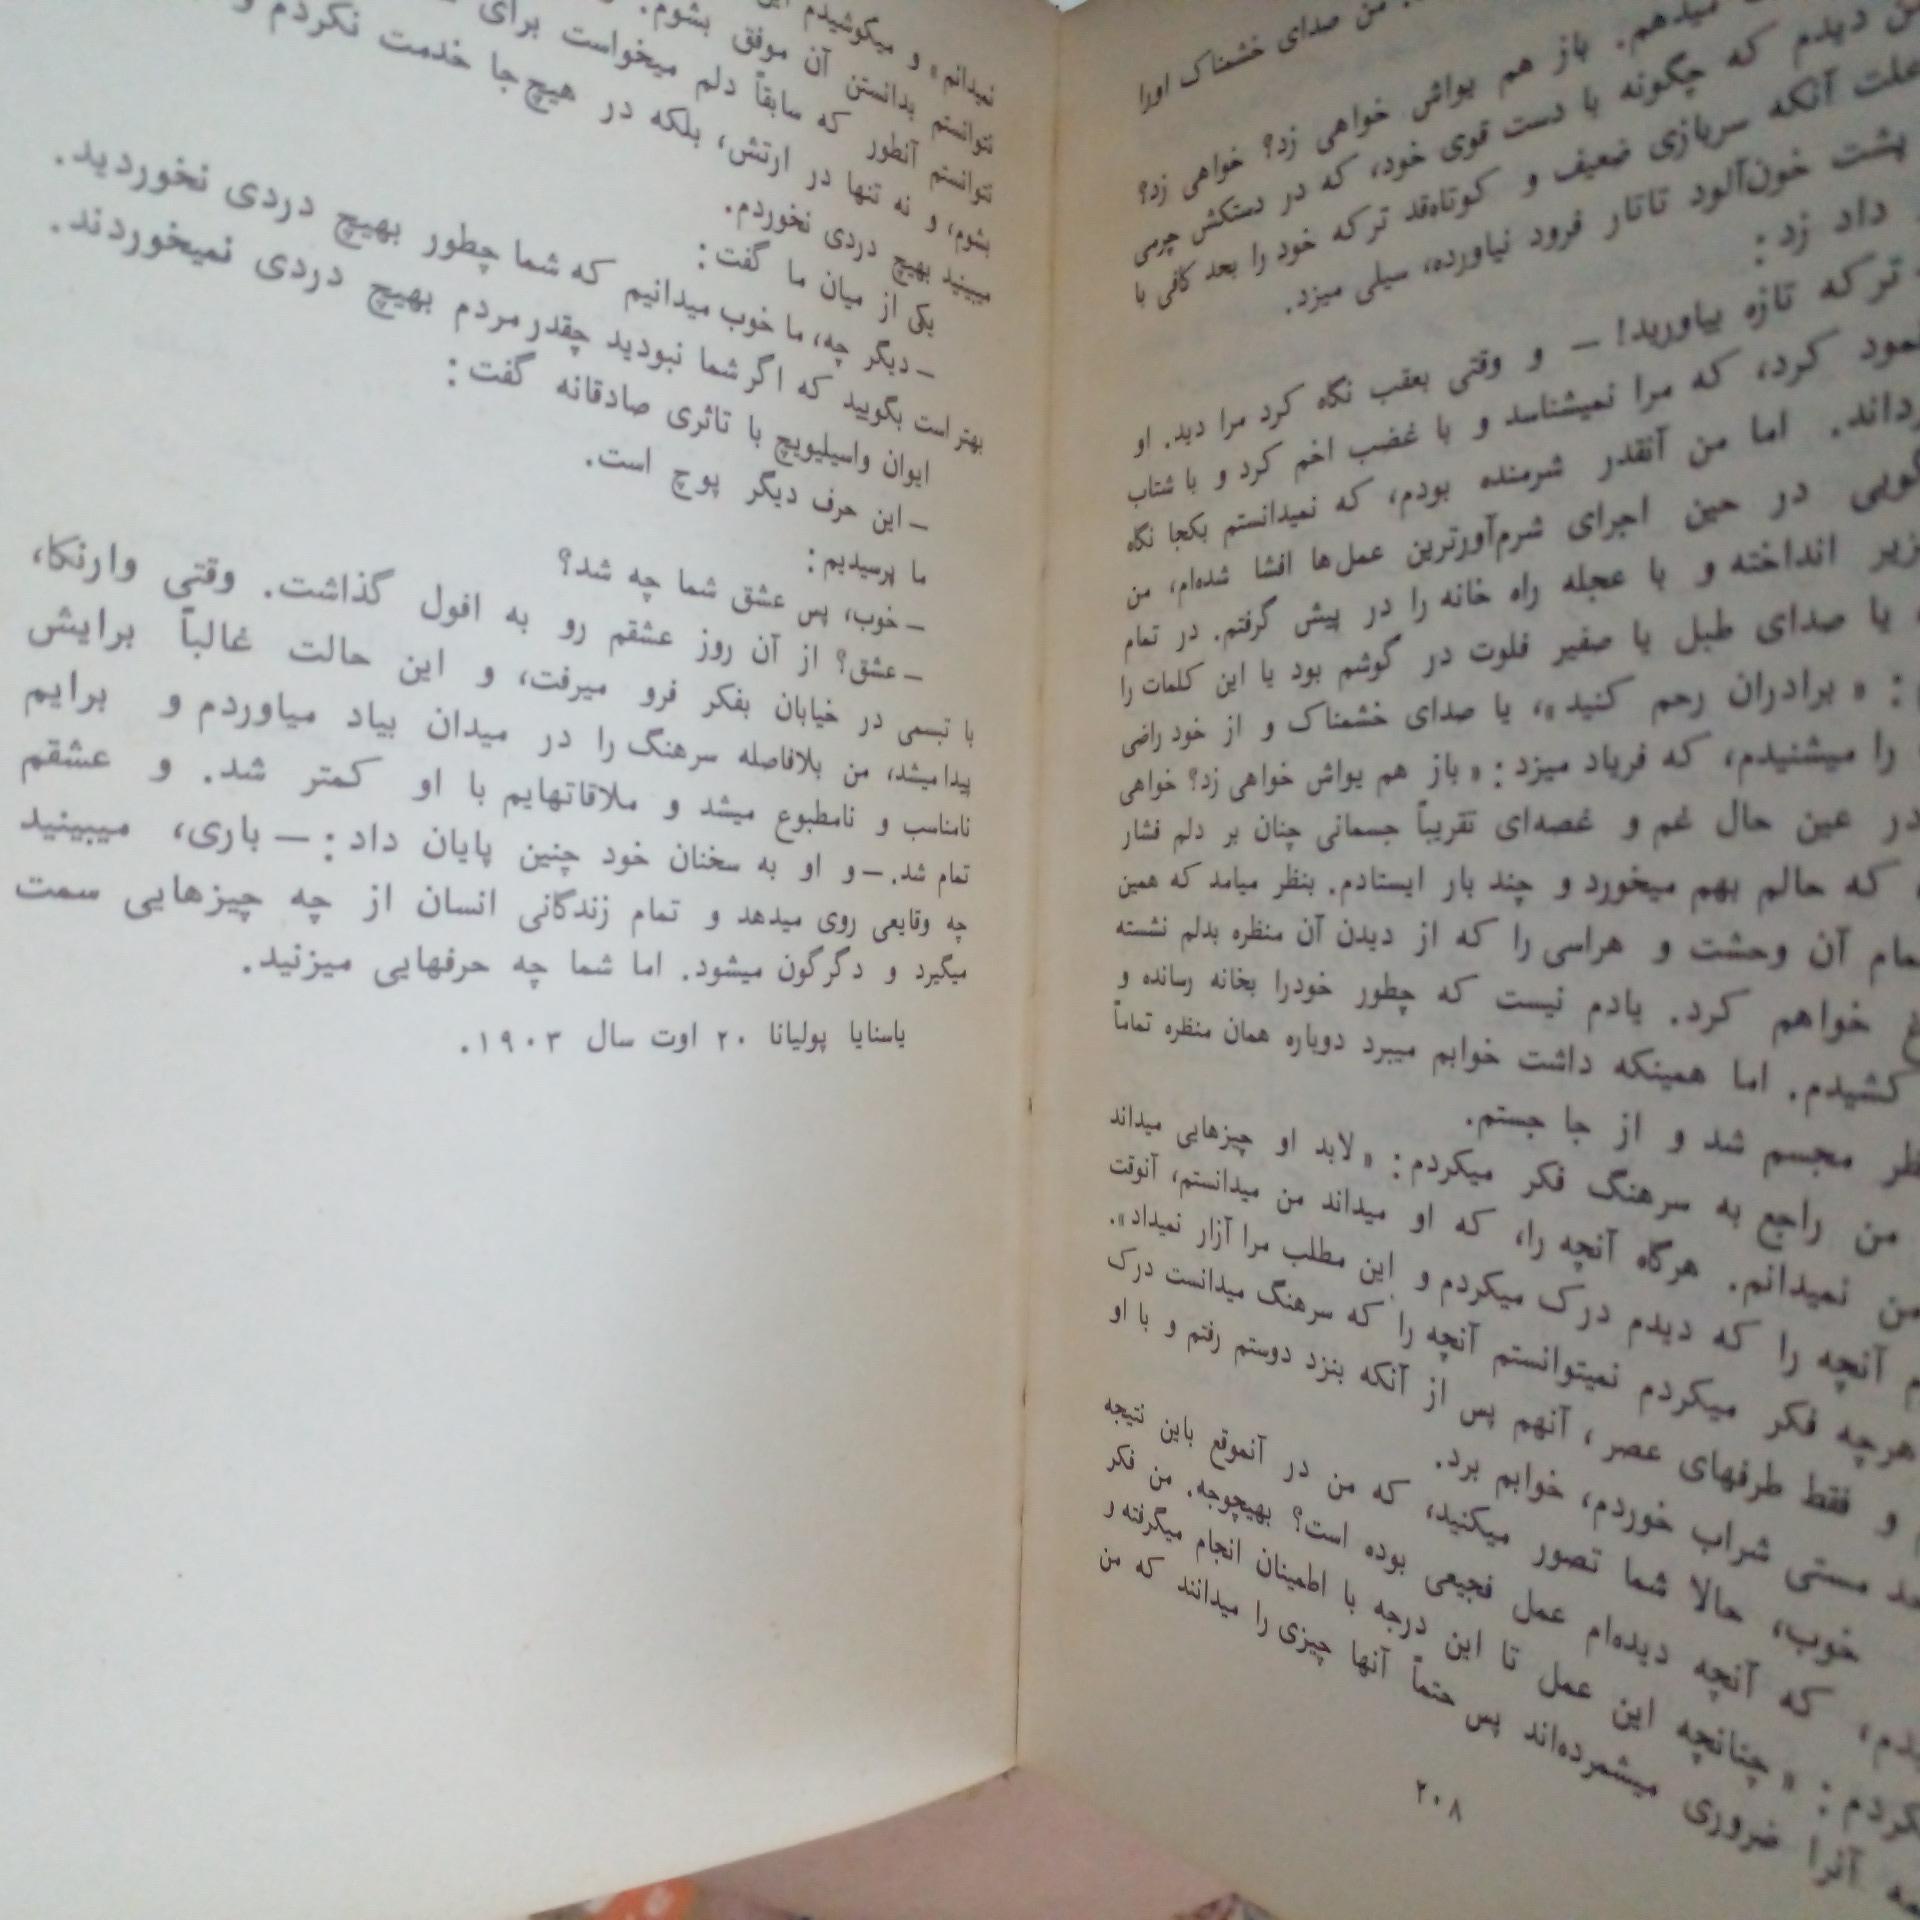 من صدای خشمناک اورا
میدهم. باز هم یواش خواهی زد؟ خواهی زد؟
دیدم که چگونه با دست قوی خود، که در دستکش چرمی
علت آنکه سربازی ضعیف و کوتاه‌قد ترکه خود را بحد کافی با
پشت خون‌آلود تاتار فرود نیاورده، سیلی میزد.
داد زد:
ترکه تازه بیاورید! — و وقتی بعقب نگاه کرد مرا دید. او
کرد، که مرا نمیشناسد و با غضب اخم کرد و با شتاب
اما من آنقدر شرمنده بودم، که نمیدانستم بکجا نگاه
در حین اجرای شرم‌آورترین عمل‌ها افشا شده‌ام، من
انداخته و با عجله راه خانه را در پیش گرفتم. در تمام
یا صدای طبل یا صفیر فلوت در گوشم بود یا این کلمات را
: «برادران رحم کنید»، یا صدای خشمناک و از خود راضی
را میشنیدم، که فریاد میزد: «باز هم یواش خواهی زد؟ خواهی
در عین حال غم و غصه‌ای تقریباً جسمانی چنان بر دلم فشار
که حالم بهم میخورد و چند بار ایستادم. بنظر میامد که همین
آن وحشت و هراسی را که از دیدن آن منظره بدلم نشسته
خواهم کرد. یادم نیست که چطور خودرا بخانه رسانده و
کشیدم. اما همینکه داشت خوابم میبرد دوباره همان منظره تماماً
مجسم شد و از جا جستم.
من راجع به سرهنگ فکر میکردم: «لابد او چیزهایی میداند
نمیدانم. هرگاه آنچه را، که او میداند من میدانستم، آنوقت
آنچه را که دیدم درک میکردم و این مطلب مرا آزار نمیداد».
هرچه فکر میکردم نمیتوانستم آنچه را که سرهنگ میدانست درک
و فقط طرفهای عصر، آنهم پس از آنکه بنزد دوستم رفتم و با او
مستی شراب خوردم، خوابم برد.
خوب، حالا شما تصور میکنید، که من در آنموقع باین نتیجه
که آنچه دیده‌ام عمل فجیعی بوده است؟ بهیچوجه. من فکر
: «چنانچه این عمل تا این درجه با اطمینان انجام میگرفته و
آنرا ضروری میشمرده‌اند پس حتماً آنها چیزی را میدانند که من
۲۰۸
نمیدانم» و میکوشیدم
نتوانستم بدانستن آن موفق بشوم.
نتوانستم آنطور که سابقاً دلم میخواست برای
بشوم، و نه تنها در ارتش، بلکه در هیچ‌جا خدمت نکردم و
میبینید بهیچ دردی نخوردم.
یکی از میان ما گفت:
— دیگر چه، ما خوب میدانیم که شما چطور بهیچ دردی نخوردید.
بهتر است بگویید که اگر شما نبودید چقدر مردم بهیچ دردی نمیخوردند.
ایوان واسیلیویچ با تاثری صادقانه گفت:
— این حرف دیگر پوچ است.
ما پرسیدیم:
— خوب، پس عشق شما چه شد؟
— عشق؟ از آن روز عشقم رو به افول گذاشت. وقتی وارنکا،
با تبسمی در خیابان بفکر فرو میرفت، و این حالت غالباً برایش
پیدا میشد، من بلافاصله سرهنگ را در میدان بیاد میاوردم و برایم
نامناسب و نامطبوع میشد و ملاقاتهایم با او کمتر شد. و عشقم
تمام شد. — و او به سخنان خود چنین پایان داد: — باری، میبینید
چه وقایعی روی میدهد و تمام زندگانی انسان از چه چیزهایی سمت
میگیرد و دگرگون میشود. اما شما چه حرفهایی میزنید.
یاسنایا پولیانا ۲۰ اوت سال ۱۹۰۳.